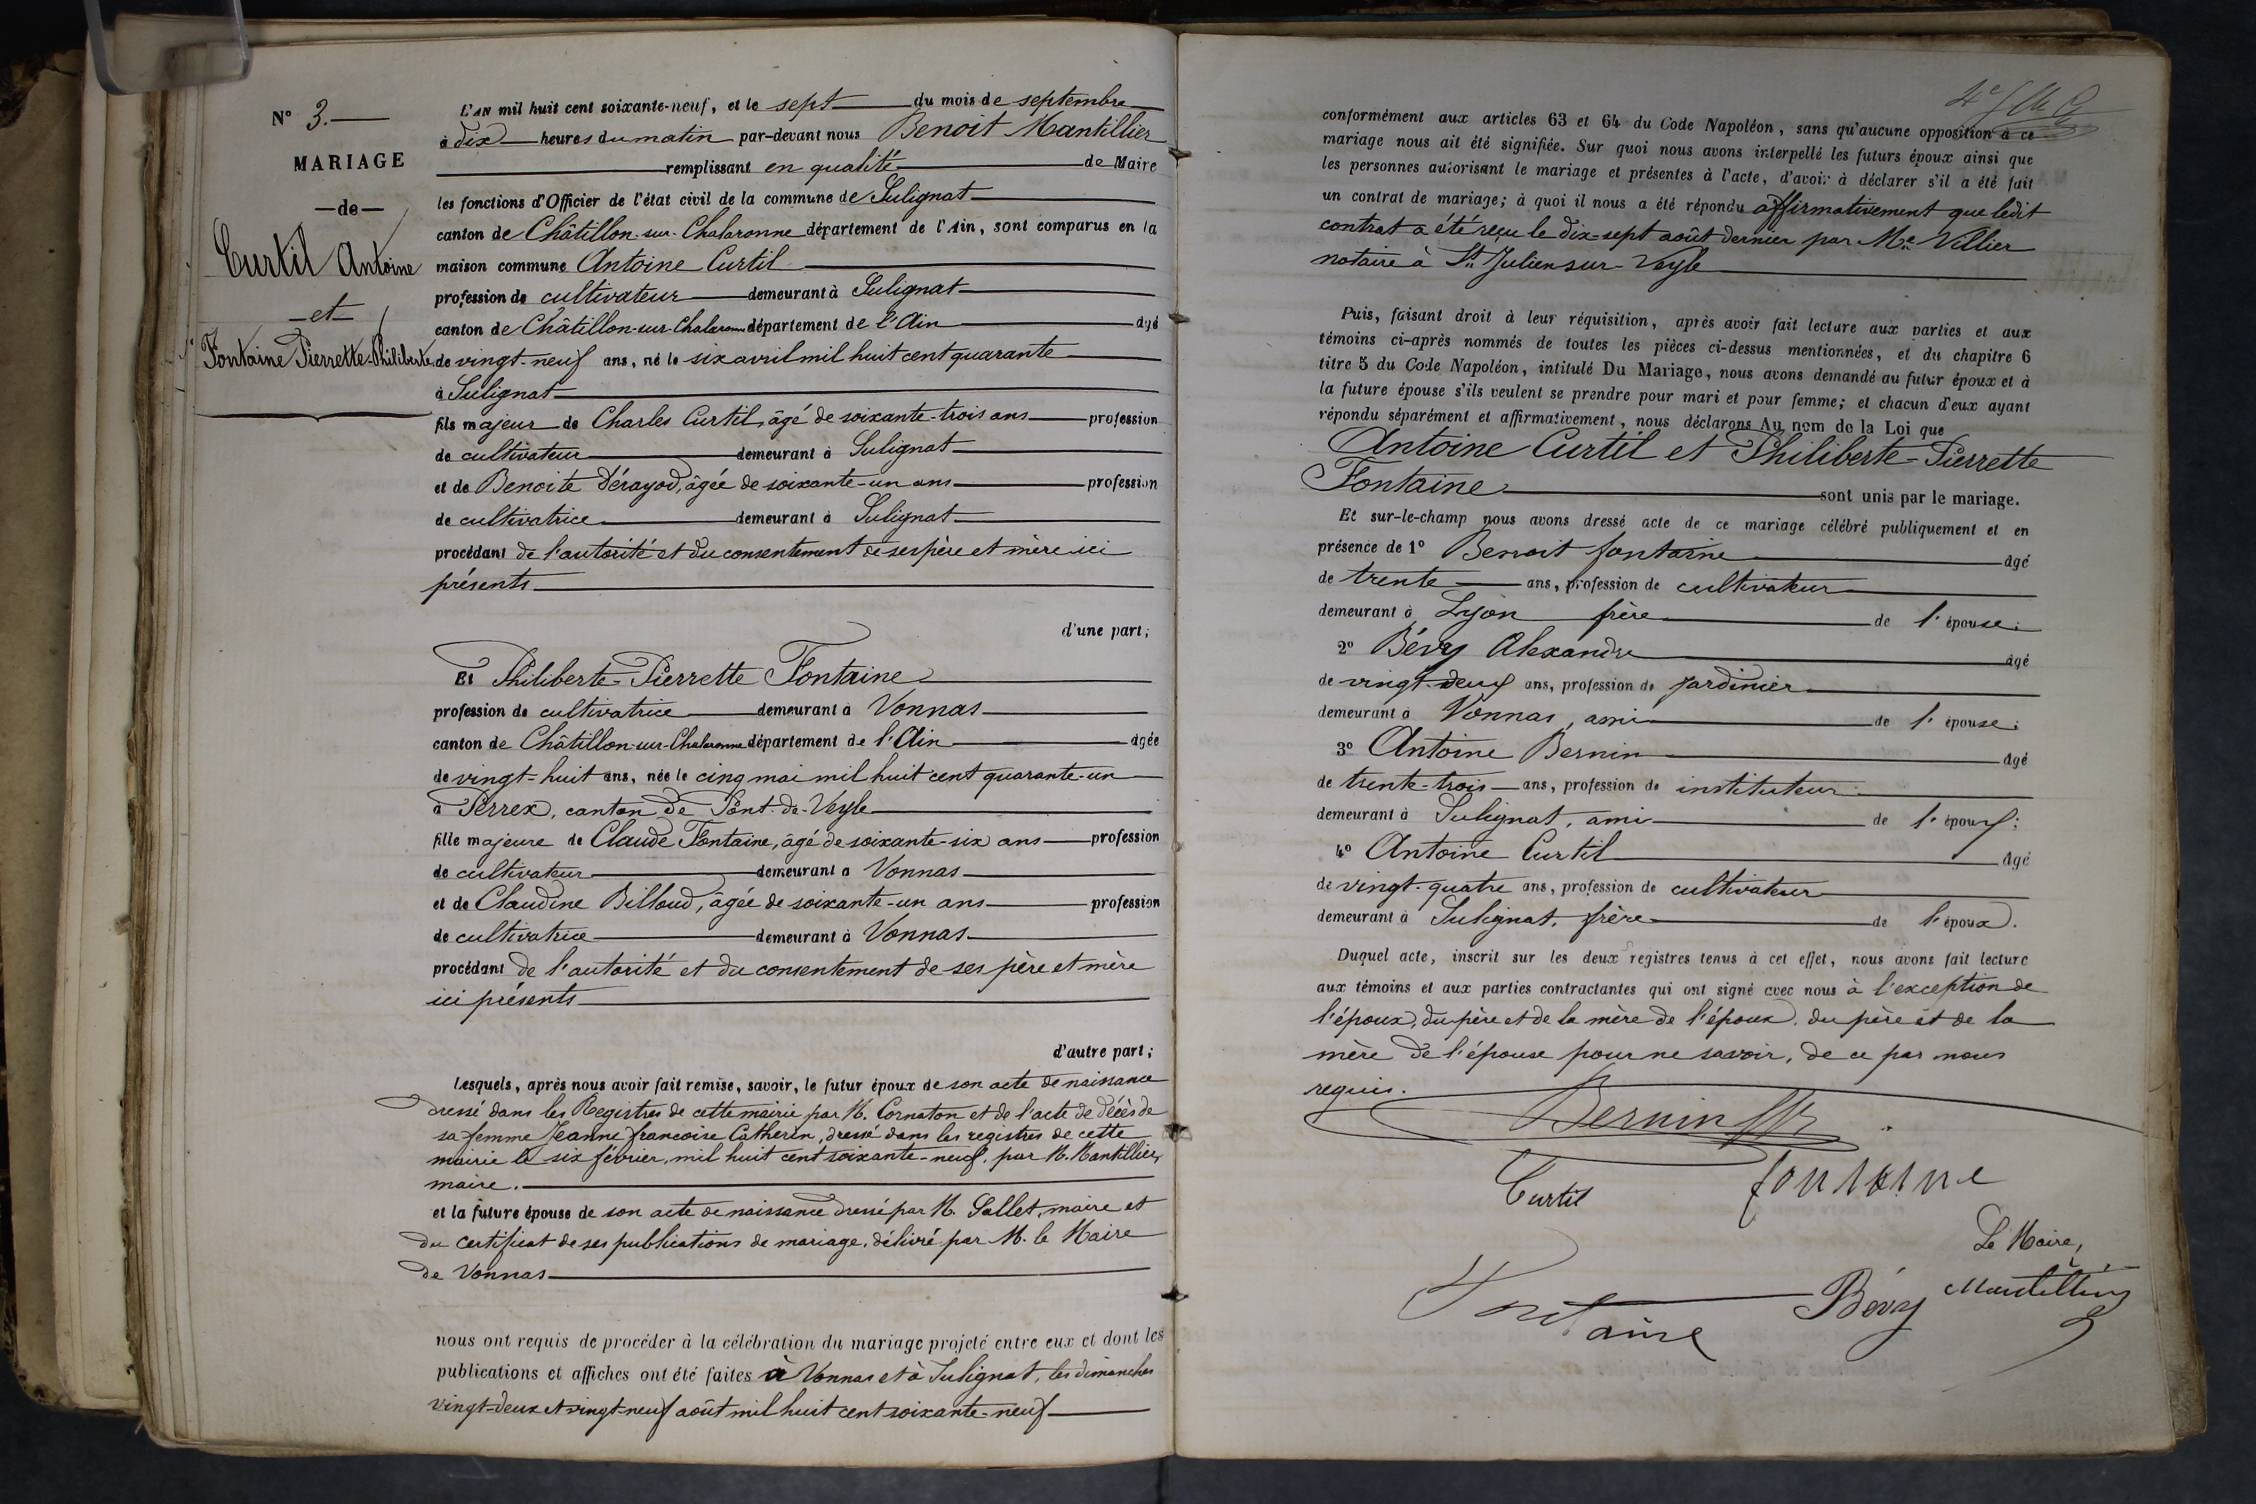 N° 3.
MARIAGE
de
Curtil Antoine
et
Fontaine Pierrette-Philiberte
L'AN mil huit cent soixante-neuf, et le sept du mois de septembre
à dix heures du matin par-devant nous Benoit Mantillier
remplissant en qualité de Maire
les fonctions d'Officier de l'état civil de la commune de Sulignat
canton de Châtillon-sur-Chalaronne département de l'Ain, sont comparus en la
maison commune Antoine Curtil
profession de cultivateur demeurant à Sulignat
canton de Châtillon-sur-Chalaronne département de l'Ain âgé
de vingt-neuf ans, né le six avril mil huit cent quarante
à Sulignat
fils majeur de Charles Curtil, âgé de soixante-trois ans profession
de cultivateur demeurant à Sulignat
et de Benoite Dérayod, âgée de soixante-un ans profession
de cultivatrice demeurant à Sulignat
procédant de l'autorité et du consentement de ses père et mère ici
présents
d'une part;
Et Philiberte-Pierrette Fontaine
profession de cultivatrice demeurant à Vonnas
canton de Châtillon-sur-Chalaronne département de l'Ain âgée
de vingt-huit ans, née le cinq mai mil huit cent quarante-un
à Perrex, canton de Pont-de-Veyle
fille majeure de Claude Fontaine, âgé de soixante-six ans profession
de cultivateur demeurant à Vonnas
et de Claudine Billoud, âgée de soixante-un ans profession
de cultivatrice demeurant à Vonnas
procédant de l'autorité et du consentement de ses père et mère
ici présents
d'autre part;
Lesquels, après nous avoir fait remise, savoir, le futur époux de son acte de naissance
dressé dans les Registres de cette mairie par M. Cornaton et de l'acte de décès de
sa femme Jeanne françoise Catherin, dressé dans les registres de cette
mairie le six février, mil huit cent soixante-neuf, par M. Mantillier,
maire.
et la future épouse de son acte de naissance dressé par M. Sallet, maire et
du certificat de ses publications de mariage, délivré par M. le Maire
de Vonnas
nous ont requis de procéder à la célébration du mariage projeté entre eux et dont les
publications et affiches ont été faites à Vonnas et à Sulignat, les dimanches
vingt-deux et vingt-neuf août mil huit cent soixante-neuf
conformément aux articles 63 et 64 du Code Napoléon, sans qu'aucune opposition à ce
mariage nous ait été signifiée. Sur quoi nous avons interpellé les futurs époux ainsi que
les personnes autorisant le mariage et présentes à l'acte, d'avoir à déclarer s'il a été fait
un contrat de mariage; à quoi il nous a été répondu affirmativement que ledit
contrat a été reçu le dix-sept août dernier par Me Villier
notaire à St Julien sur-Veyle
Puis, faisant droit à leur réquisition, après avoir fait lecture aux parties et aux
témoins ci-après nommés de toutes les pièces ci-dessus mentionnées, et du chapitre 6
titre 5 du Code Napoléon, intitulé Du Mariage, nous avons demandé au futur époux et à
la future épouse s'ils veulent se prendre pour mari et pour femme; et chacun d'eux ayant
répondu séparément et affirmativement, nous déclarons Au nom de la Loi que
Antoine Curtil et Philiberte-Pierrette
Fontaine sont unis par le mariage.
Et sur-le-champ nous avons dressé acte de ce mariage célébré publiquement et en
présence de 1° Benoit fontaine âgé
de trente ans, profession de cultivateur
demeurant à Lyon frère de l'épouse;
2° Bévy Alexandre âgé
de vingt-deux ans, profession de jardinier
demeurant à Vonnas, ami de l'épouse;
3° Antoine Bernin âgé
de trente-trois ans, profession de instituteur
demeurant à Sulignat, ami de l'époux;
4° Antoine Curtil âgé
de vingt-quatre ans, profession de cultivateur
demeurant à Sulignat, frère de l'époux.
Duquel acte, inscrit sur les deux registres tenus à cet effet, nous avons fait lecture
aux témoins et aux parties contractantes qui ont signé avec nous à l'exception de
l'époux, du père et de la mère de l'époux, du père et de la
mère de l'épouse pour ne savoir, de ce par nous
requis.
Bernin
Curtil fontaine
Le Maire,
Fontaine Bévy Mantillier